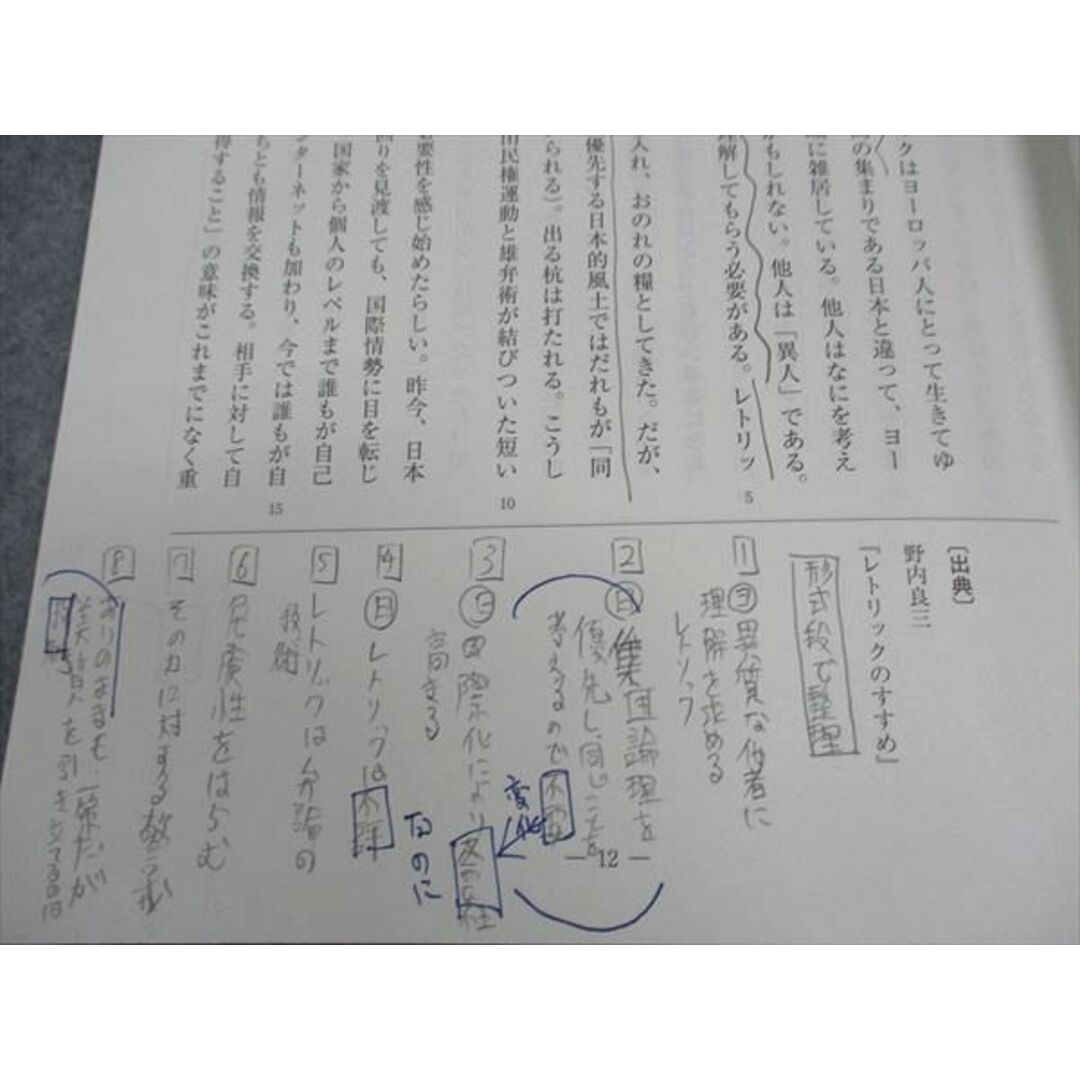 クはヨーロッパ人にとって生きてゆ
の集まりである日本と違って、ヨー
に雑居している。他人はなにを考え
かもしれない。他人は「異人」である。
解してもらう必要がある。レトリッ
5
入れ、おのれの糧としてきた。だが、
優先する日本的風土ではだれもが「同
られる）。出る杭は打たれる。こうし
由民権運動と雄弁術が結びついた短い
10
要性を感じ始めたらしい。昨今、日本
回りを見渡しても、国際情勢に目を転じ
国家から個人のレベルまで誰もが自己
ンターネットも加わり、今では誰もが自
15
ちとも情報を交換する。相手に対して自
得すること」の意味がこれまでになく重
〔出典〕
野内良三
『レトリックのすすめ』
形式段で整理
1 ヨ 異質な他者に
理解を求める
レトリック
2 日 集団論理を
優先し、同じことを
考えるので不要
3 国際化により必要性
高まる
変化
4 日 レトリックは不評
なのに
5 レトリックは弁論の
技術
6 危険性をはらむ
7 その力に対する
8 ありのままも一策だが
を引き立てる
— 12 —